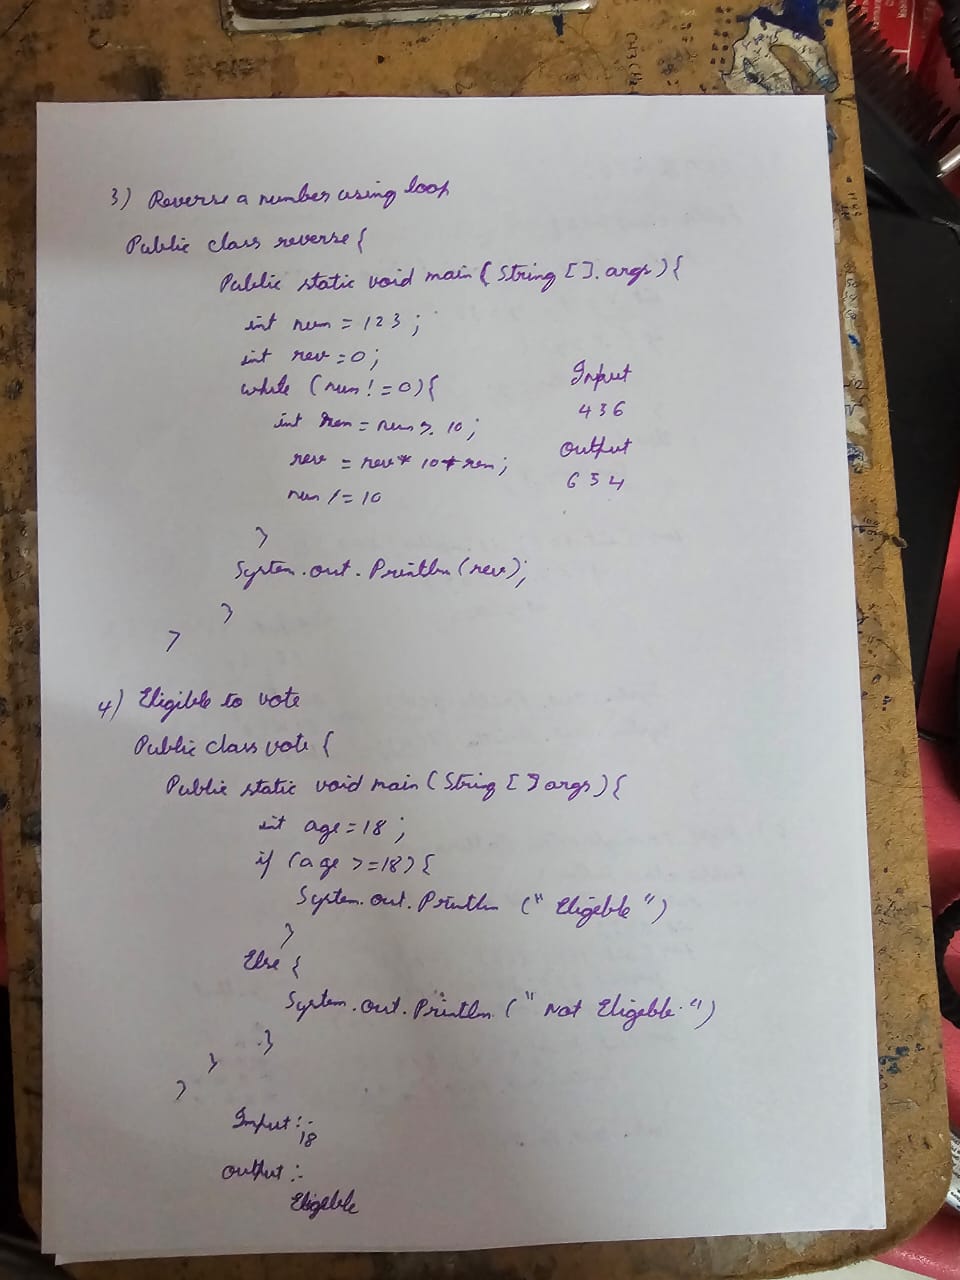 3) Reverse a number using loop
Public class reverse {
Public static void main ( String [ ]. args ) {
int num = 123 ;
int rev = 0 ;
while (num ! = 0) {
int rem = num % 10 ;
rev = rev * 10 + rem ;
num / = 10
}
System.out.Println (rev);
}
}
Input
436
output
634
4) Eligible to vote
Public class vote {
Public static void main ( String [ ] args ) {
int age = 18 ;
if (age >= 18) {
System.out.Println (" Eligible ")
}
Else {
System.out.Println (" Not Eligible ")
}
}
}
Input :-
18
output :-
Eligible